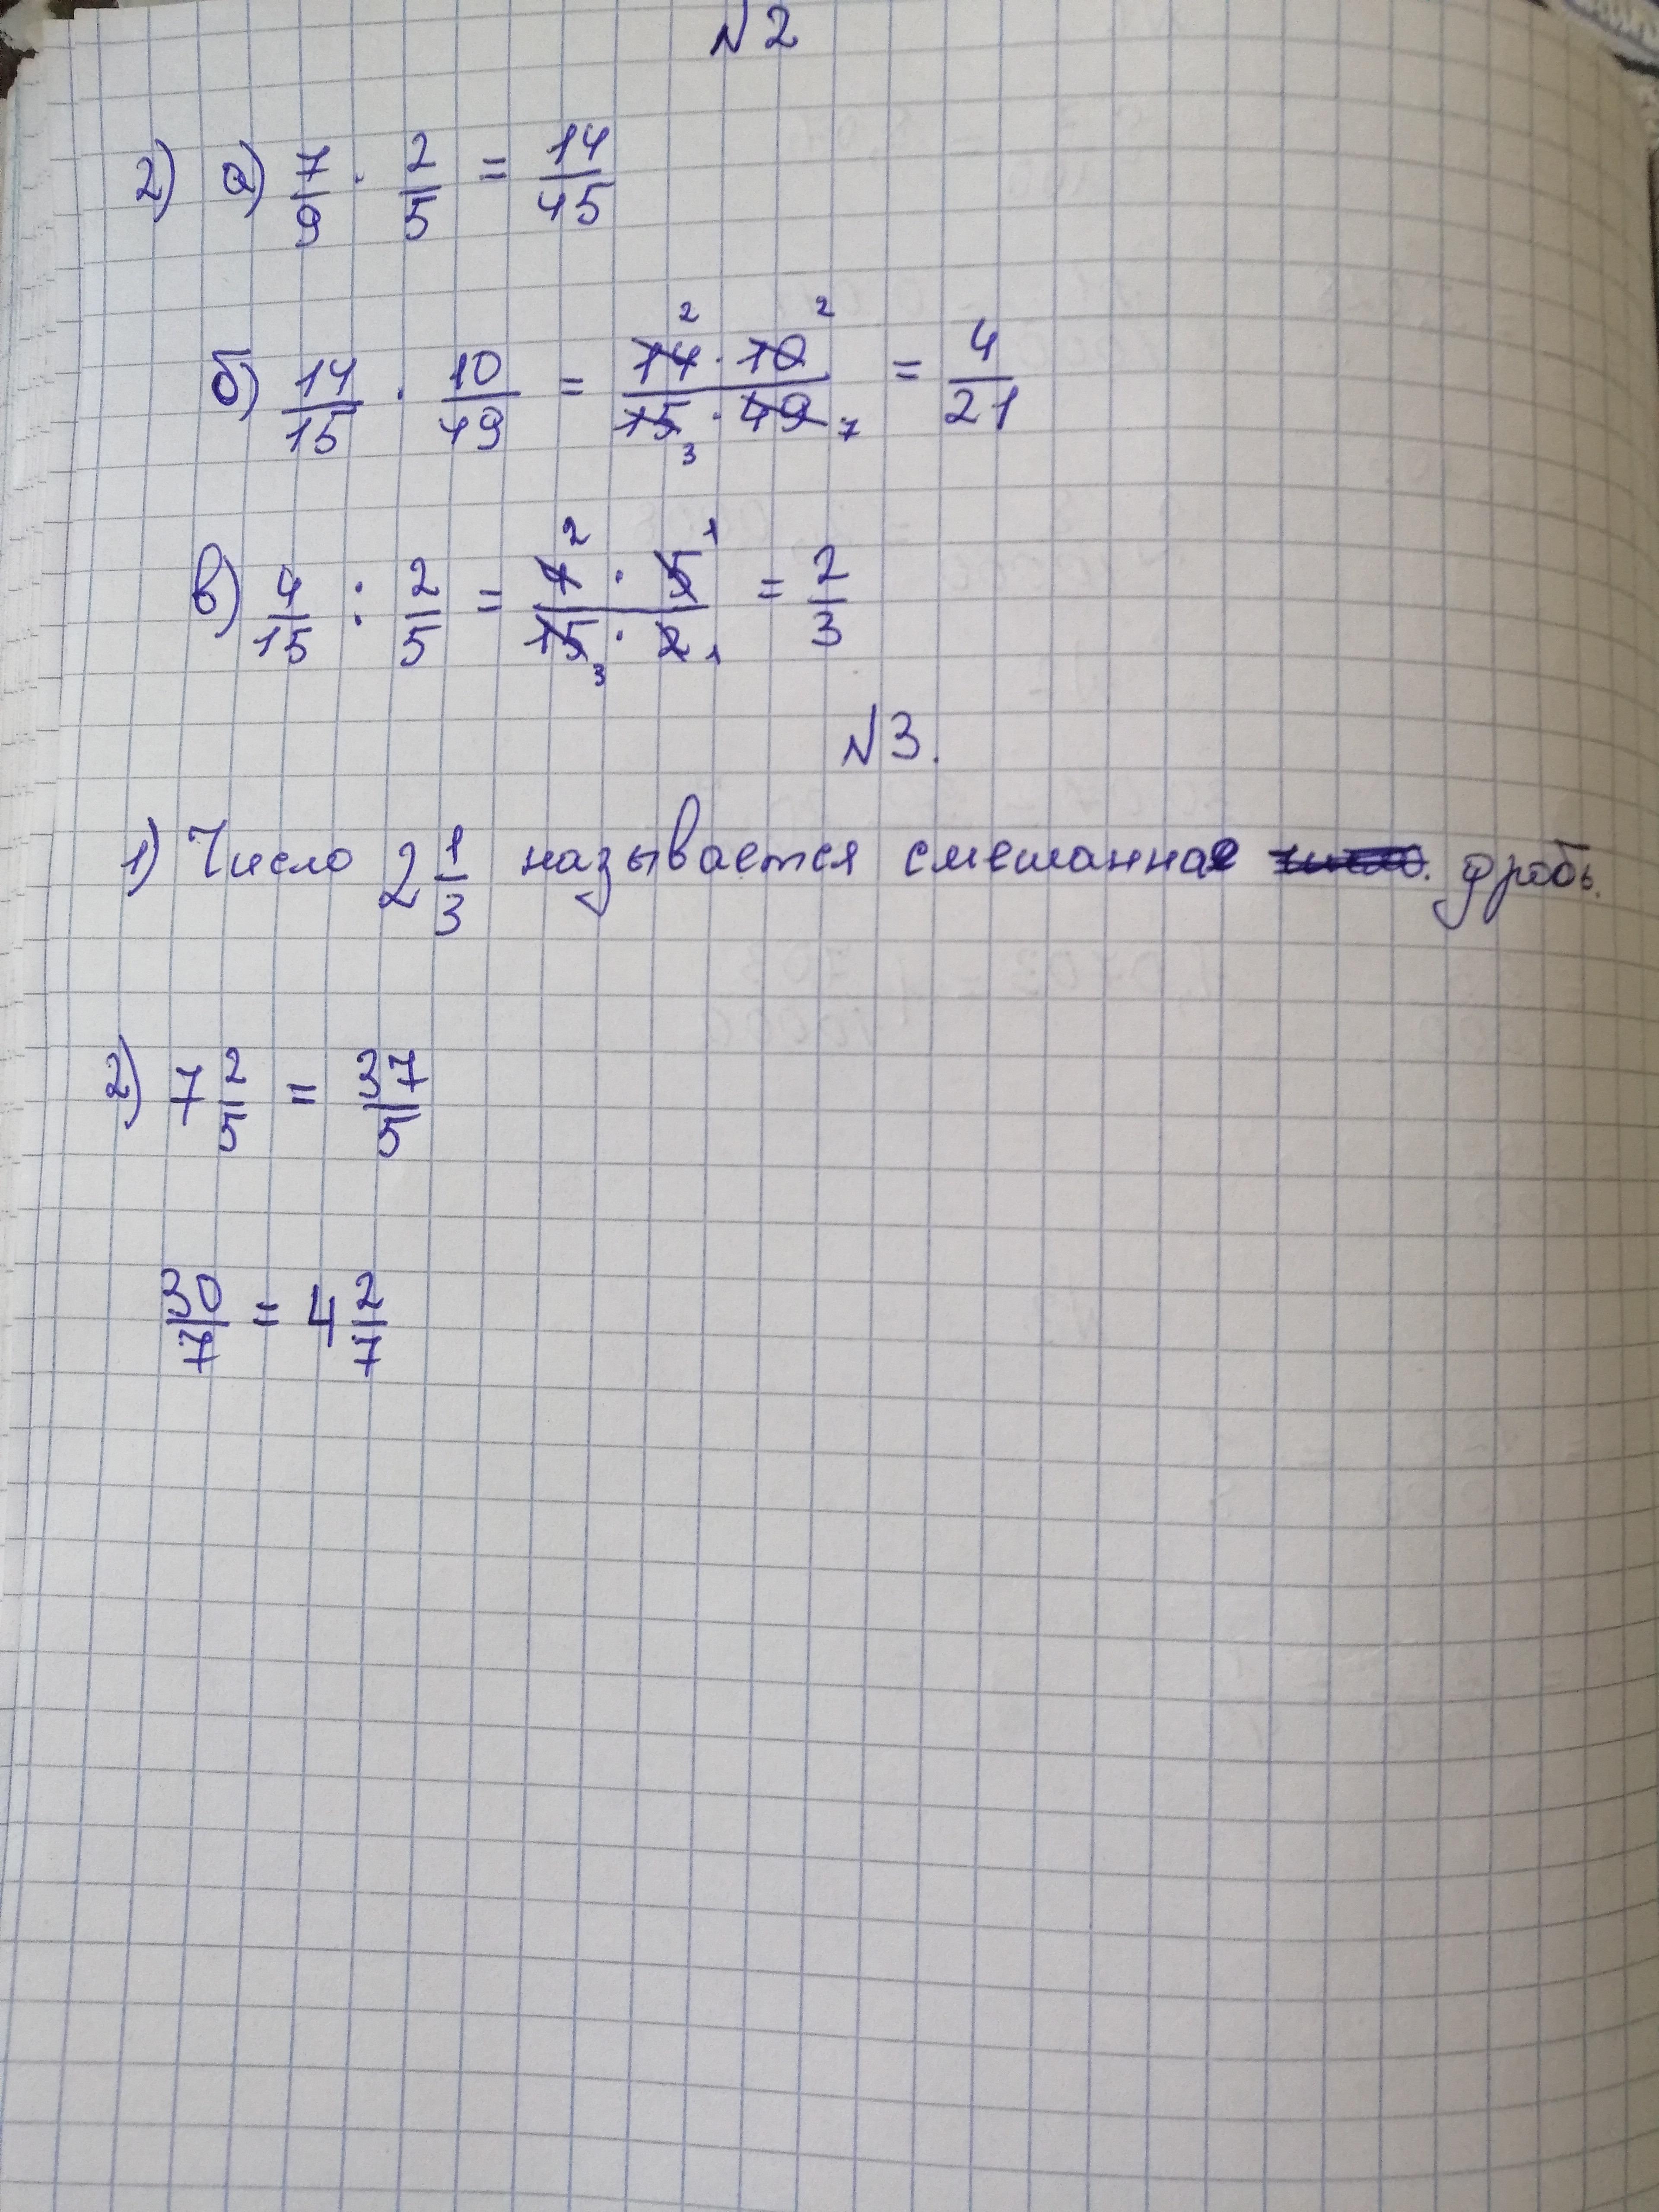 №2
2) а) 7/9 · 2/5 = 14/45
б) 14/15 · 10/49 = 14² · 10² / 15₃ · 49₇ = 4/21
в) 4/15 : 2/5 = 4² · 5¹ / 15₃ · 2₁ = 2/3
№3.
1) Число 2 1/3 называется смешанная дробь.
2) 7 2/5 = 37/5
30/7 = 4 2/7